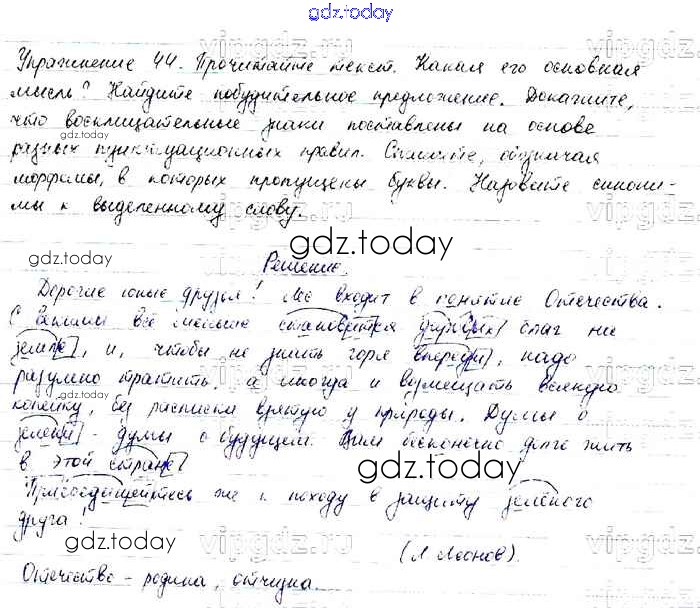 gdz.today
Упражнение 44. Прочитайте текст. Какая его основная
мысль? Найдите побудительное предложение. Докажите,
что восклицательные знаки поставлены на основе
gdz.today
разных пунктуационных правил. Спишите, обозначая
морфемы, в которых пропущены буквы. Назовите синони-
мы к выделенному слову.
gdz.today
Решение.
Дорогие юные друзья! Лес входит в понятие Отечества.
С годами всё меньше становится даровых благ на
земле, и, чтобы не знать горя впереди, надо
разумно тратить, а иногда и возмещать всякую
копейку, без расписки взятую у природы. Думы о
зелени - думы о будущем. Вам бесконечно долго жить
в этой стране!
gdz.today
Присоединяйтесь же к походу в защиту зелёного
друга!
gdz.today
(Л. Леонов).
Отечество - родина, отчизна.
vipgdz.ru